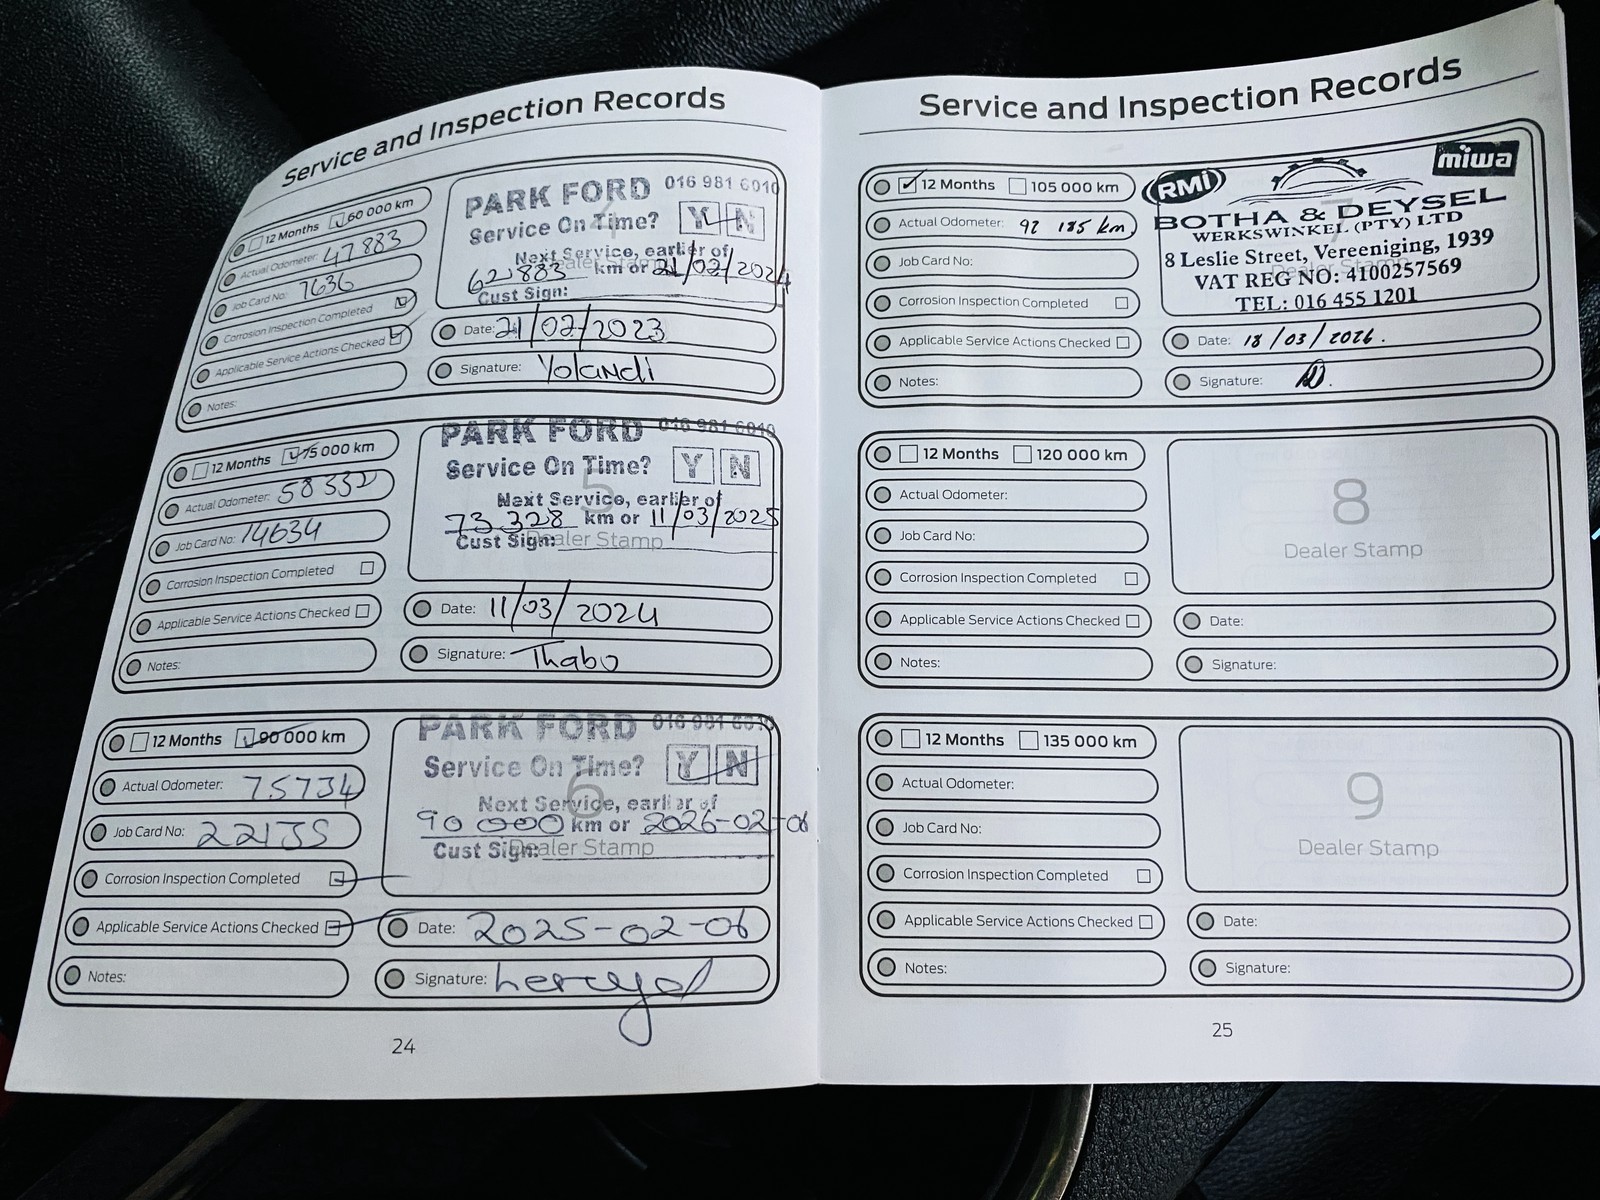 Service and Inspection Records
12 Months 60 000 km
Actual Odometer: 47883
Job Card No: 7636
Corrosion Inspection Completed
Applicable Service Actions Checked
Notes:
PARK FORD 016 981 6010
Service On Time? Y N
Next Service, earlier of
62883 km or 21/02/2024
Cust Sign:
Dealer Stamp
Date: 21/02/2023
Signature: Yolandi
12 Months 75 000 km
Actual Odometer: 58332
Job Card No: 14634
Corrosion Inspection Completed
Applicable Service Actions Checked
Notes:
PARK FORD 016 981 6010
Service On Time? Y N
5
Next Service, earlier of
73 328 km or 11/03/2025
Cust Sign:
Dealer Stamp
Date: 11/03/2024
Signature: Thabo
12 Months 90 000 km
Actual Odometer: 75734
Job Card No:
Corrosion Inspection Completed
Applicable Service Actions Checked
Notes:
PARK FORD 016 981 6010
Service On Time? Y N
6
Next Service, earlier of
90 000 km or 2026-02-06
Cust Sign:
Dealer Stamp
Date: 2025-02-06
Signature:
24
Service and Inspection Records
12 Months 105 000 km
Actual Odometer: 92 185 km
Job Card No:
Corrosion Inspection Completed
Applicable Service Actions Checked
Notes:
RMI miwa
7
BOTHA & DEYSEL
WERKSWINKEL (PTY) LTD
8 Leslie Street, Vereeniging, 1939
Dealer Stamp
VAT REG NO: 4100257569
TEL: 016 455 1201
Date: 18/03/2026.
Signature:
12 Months 120 000 km
Actual Odometer:
Job Card No:
Corrosion Inspection Completed
Applicable Service Actions Checked
Notes:
8
Dealer Stamp
Date:
Signature:
12 Months 135 000 km
Actual Odometer:
Job Card No:
Corrosion Inspection Completed
Applicable Service Actions Checked
Notes:
9
Dealer Stamp
Date:
Signature:
25